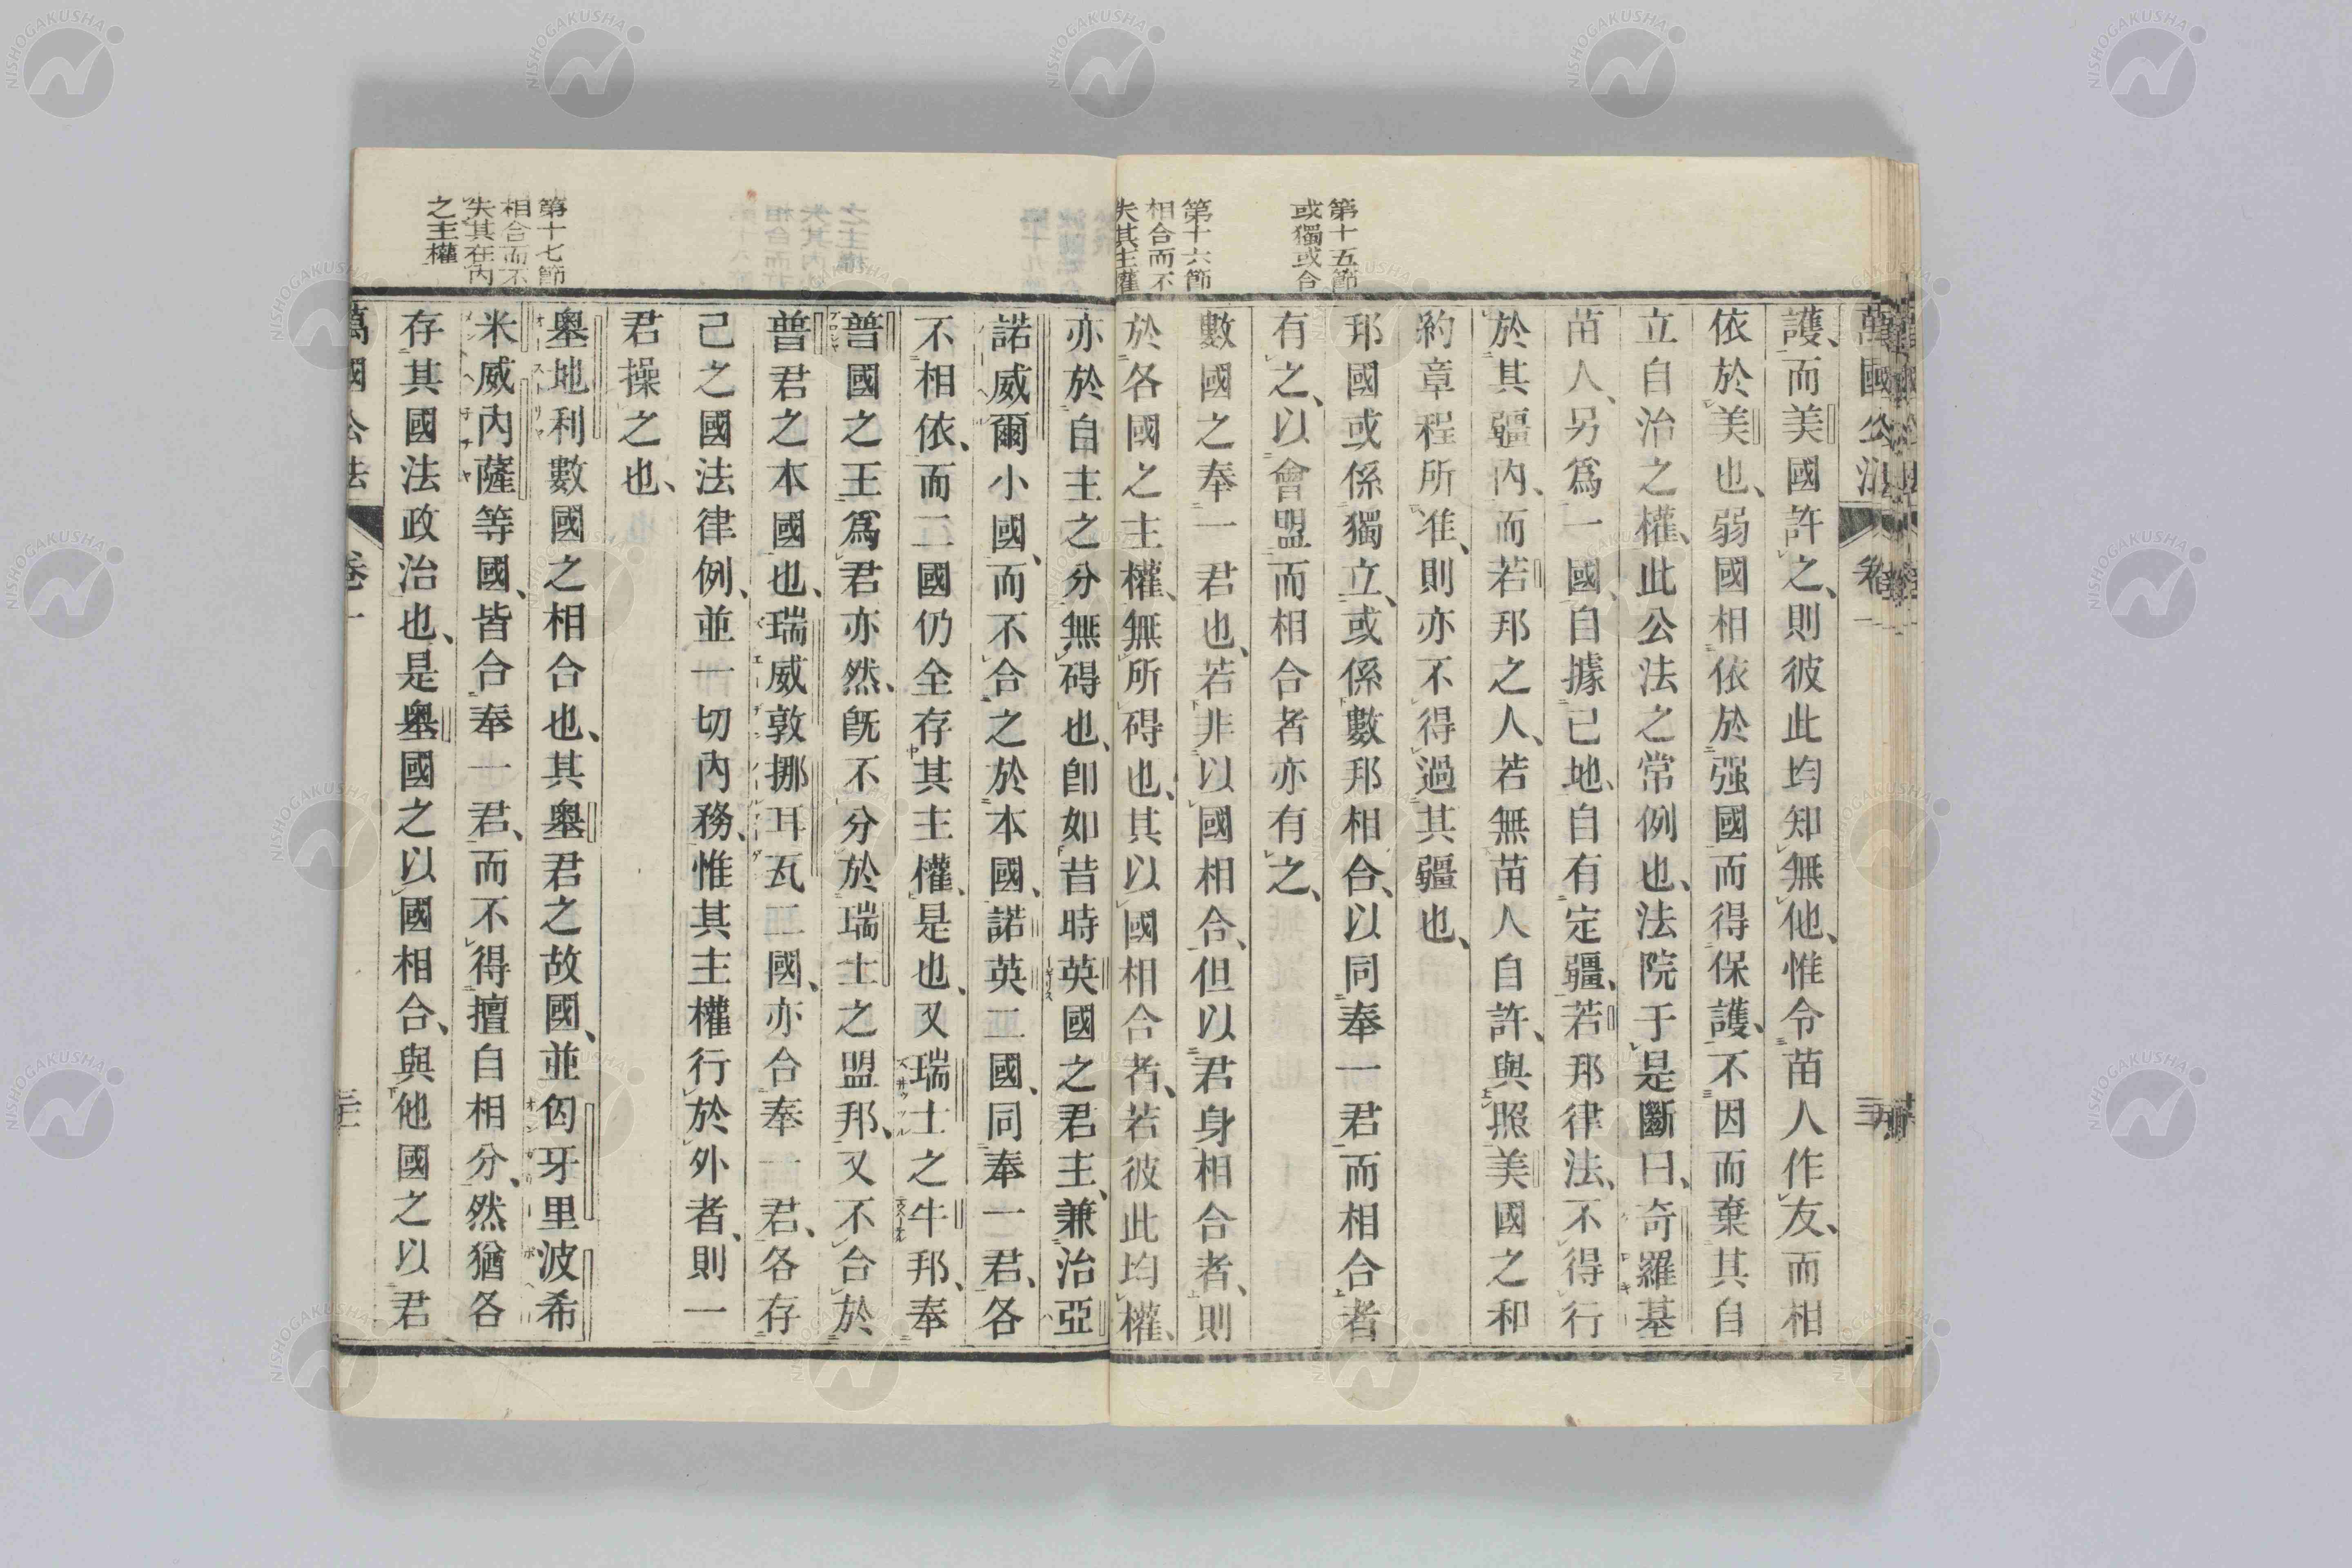 萬國公法 卷一
護、而美國許之、則彼此均知無他、惟令苗人作友、而相
依於美也、弱國相依於强國而得保護、不因而棄其自
立自治之權、此公法之常例也、法院于是斷曰、奇羅基
苗人、另爲一國、自據己地、自有定疆、若邦律法、不得行
於其疆內、而若邦之人、若無苗人自許、與照美國之和
約章程所准、則亦不得過其疆也、
第十五節
或獨或合
邦國或係獨立、或係數邦相合、以同奉一君而相合者
有之、以會盟而相合者亦有之、
第十六節
相合而不
失其主權
數國之奉一君也、若非以國相合、但以君身相合者、則
於各國之主權、無所碍也、其以國相合者、若彼此均權、
亦於自主之分無碍也、卽如昔時英國之君主、兼治亞
諾威爾小國、而不合之於本國、諾英二國、同奉一君、各
不相依、而二國仍全存其主權、是也、又瑞士之牛邦、奉
普國之王爲君亦然、旣不分於瑞士之盟邦、又不合於
普君之本國也、瑞威敦挪耳瓦二國、亦合奉一君、各存
己之國法律例、並一切內務、惟其主權行於外者、則一
君操之也、
第十七節
相合而不
失其在內
之主權
奧地利數國之相合也、其奧君之故國、並匈牙里波希
米威內薩等國、皆合奉一君、而不得擅自相分、然猶各
存其國法政治也、是奧國之以國相合、與他國之以君
萬國公法 卷一
NISHOGAKUSHA